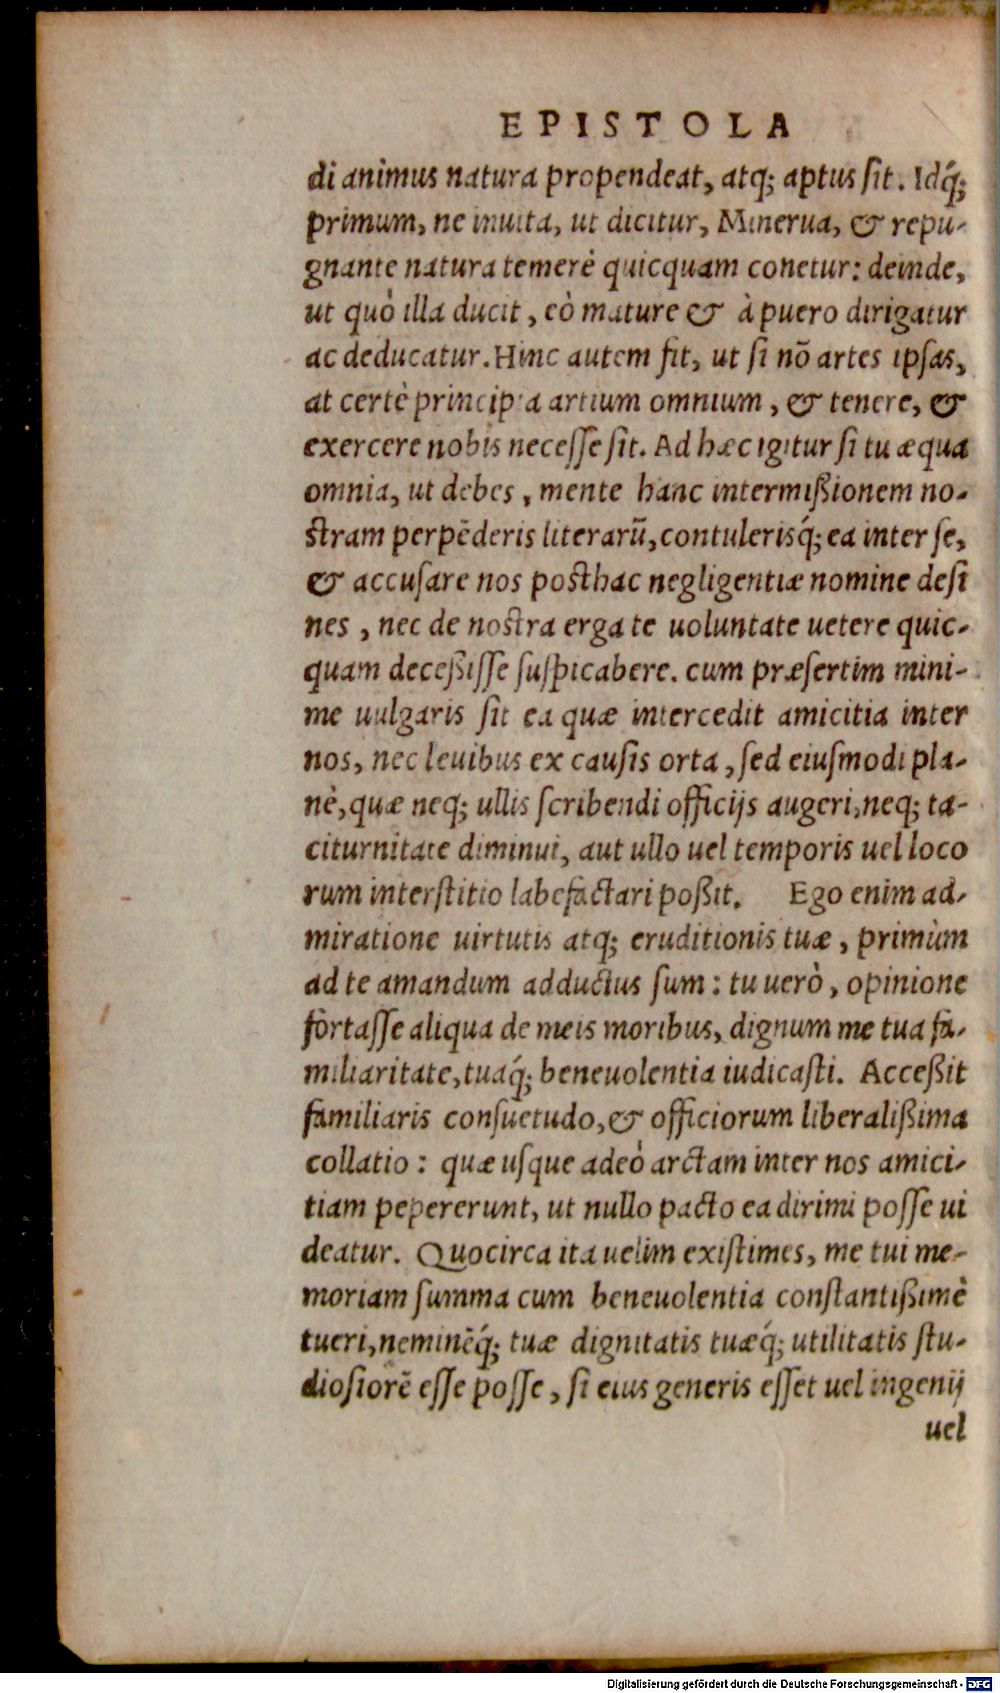 EPISTOLA
di animus natura propendeat, atq; aptus ſit. Idq́;
primum, ne inuita, ut dicitur, Minerua, & repu-
gnante natura temerè quicquam conetur: deinde,
ut quò illa ducit, eò mature & à puero dirigatur
ac deducatur. Hinc autem fit, ut ſi nō artes ipſas,
at certè principia artium omnium, & tenere, &
exercere nobis neceſſe ſit. Ad hæc igitur ſi tu æqua
omnia, ut debes, mente hanc intermißionem no-
ſtram perpēderis literarū, contulerisq́; ea inter ſe,
& accuſare nos poſthac negligentiæ nomine deſi
nes, nec de noſtra erga te uoluntate uetere quic-
quam deceßiſſe ſuſpicabere. cum præſertim mini-
me uulgaris ſit ea quæ intercedit amicitia inter
nos, nec leuibus ex cauſis orta, ſed eiuſmodi pla-
nè, quæ neq; ullis ſcribendi officijs augeri, neq; ta-
citurnitate diminui, aut ullo uel temporis uel loco
rum interſtitio labefactari poßit. Ego enim ad-
miratione uirtutis atq; eruditionis tuæ, primùm
ad te amandum adductus ſum: tu uerò, opinione
fortaſſe aliqua de meis moribus, dignum me tua fa-
miliaritate, tuaq́; beneuolentia iudicaſti. Acceßit
familiaris conſuetudo, & officiorum liberalißima
collatio: quæ uſque adeò arctam inter nos amici-
tiam pepererunt, ut nullo pacto ea dirimi poſſe ui
deatur. Quocirca ita uelim exiſtimes, me tui me-
moriam ſumma cum beneuolentia conſtantißimè
tueri, neminēq́; tuæ dignitatis tuæq́; utilitatis ſtu-
dioſiorē eſſe poſſe, ſi eius generis eſſet uel ingenij
uel
Digitalisierung gefördert durch die Deutsche Forschungsgemeinschaft - DFG